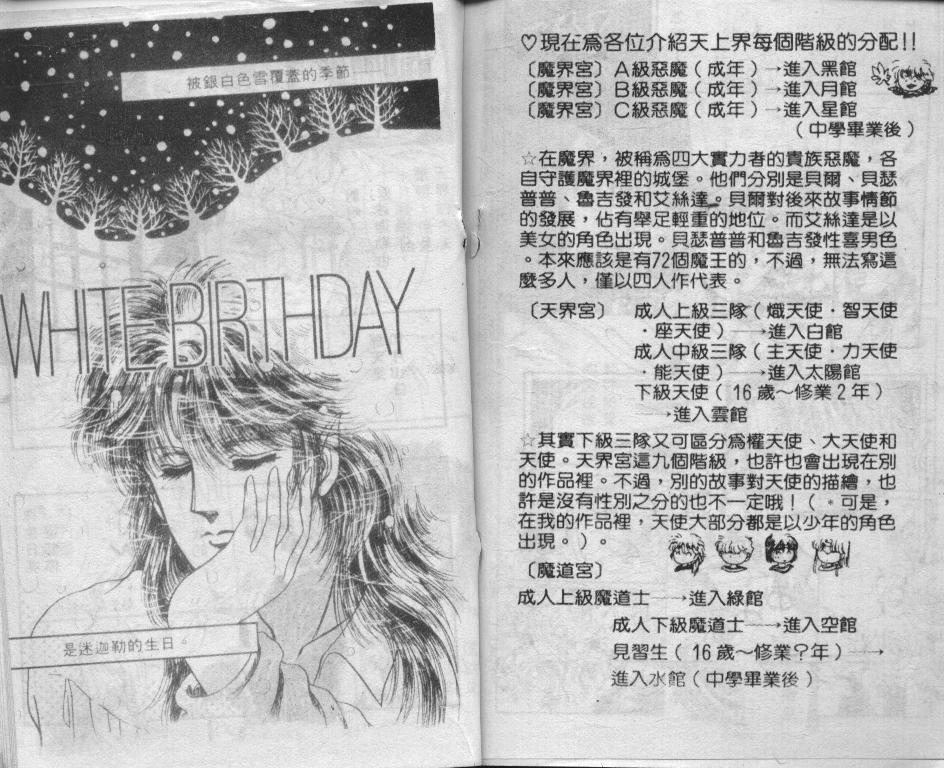 被銀白色雪覆蓋的季節……
WHITE BIRTHDAY
是迷迦勒的生日。
♡現在為各位介紹天上界每個階級的分配!!
〔魔界宮〕A級惡魔（成年）→進入黑館
〔魔界宮〕B級惡魔（成年）→進入月館
〔魔界宮〕C級惡魔（成年）→進入星館
（中學畢業後）
☆在魔界，被稱為四大實力者的貴族惡魔，各
自守護魔界裡的城堡。他們分別是貝爾、貝瑟
普普、魯吉發和艾絲達。貝爾對後來故事情節
的發展，佔有舉足輕重的地位。而艾絲達是以
美女的角色出現。貝瑟普普和魯吉發性喜男色
。本來應該是有72個魔王的，不過，無法寫這
麼多人，僅以四人作代表。
〔天界宮〕 成人上級三隊（熾天使・智天使
・座天使）─→進入白館
成人中級三隊（主天使・力天使
・能天使）─→進入太陽館
下級天使（16歲～修業2年）
─→進入雲館
☆其實下級三隊又可區分為權天使、大天使和
天使。天界宮這九個階級，也許也會出現在別
的作品裡。不過，別的故事對天使的描繪，也
許是沒有性別之分的也不一定哦！（＊可是，
在我的作品裡，天使大部分都是以少年的角色
出現。）。
〔魔道宮〕
成人上級魔道士─→進入綠館
成人下級魔道士─→進入空館
見習生（16歲～修業？年）─→
進入水館（中學畢業後）